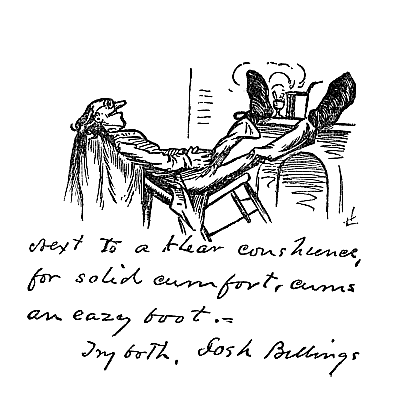 Next to a klear conshience,
for solid cumfort, cums
an eazy boot.=
Try both. Josh Billings